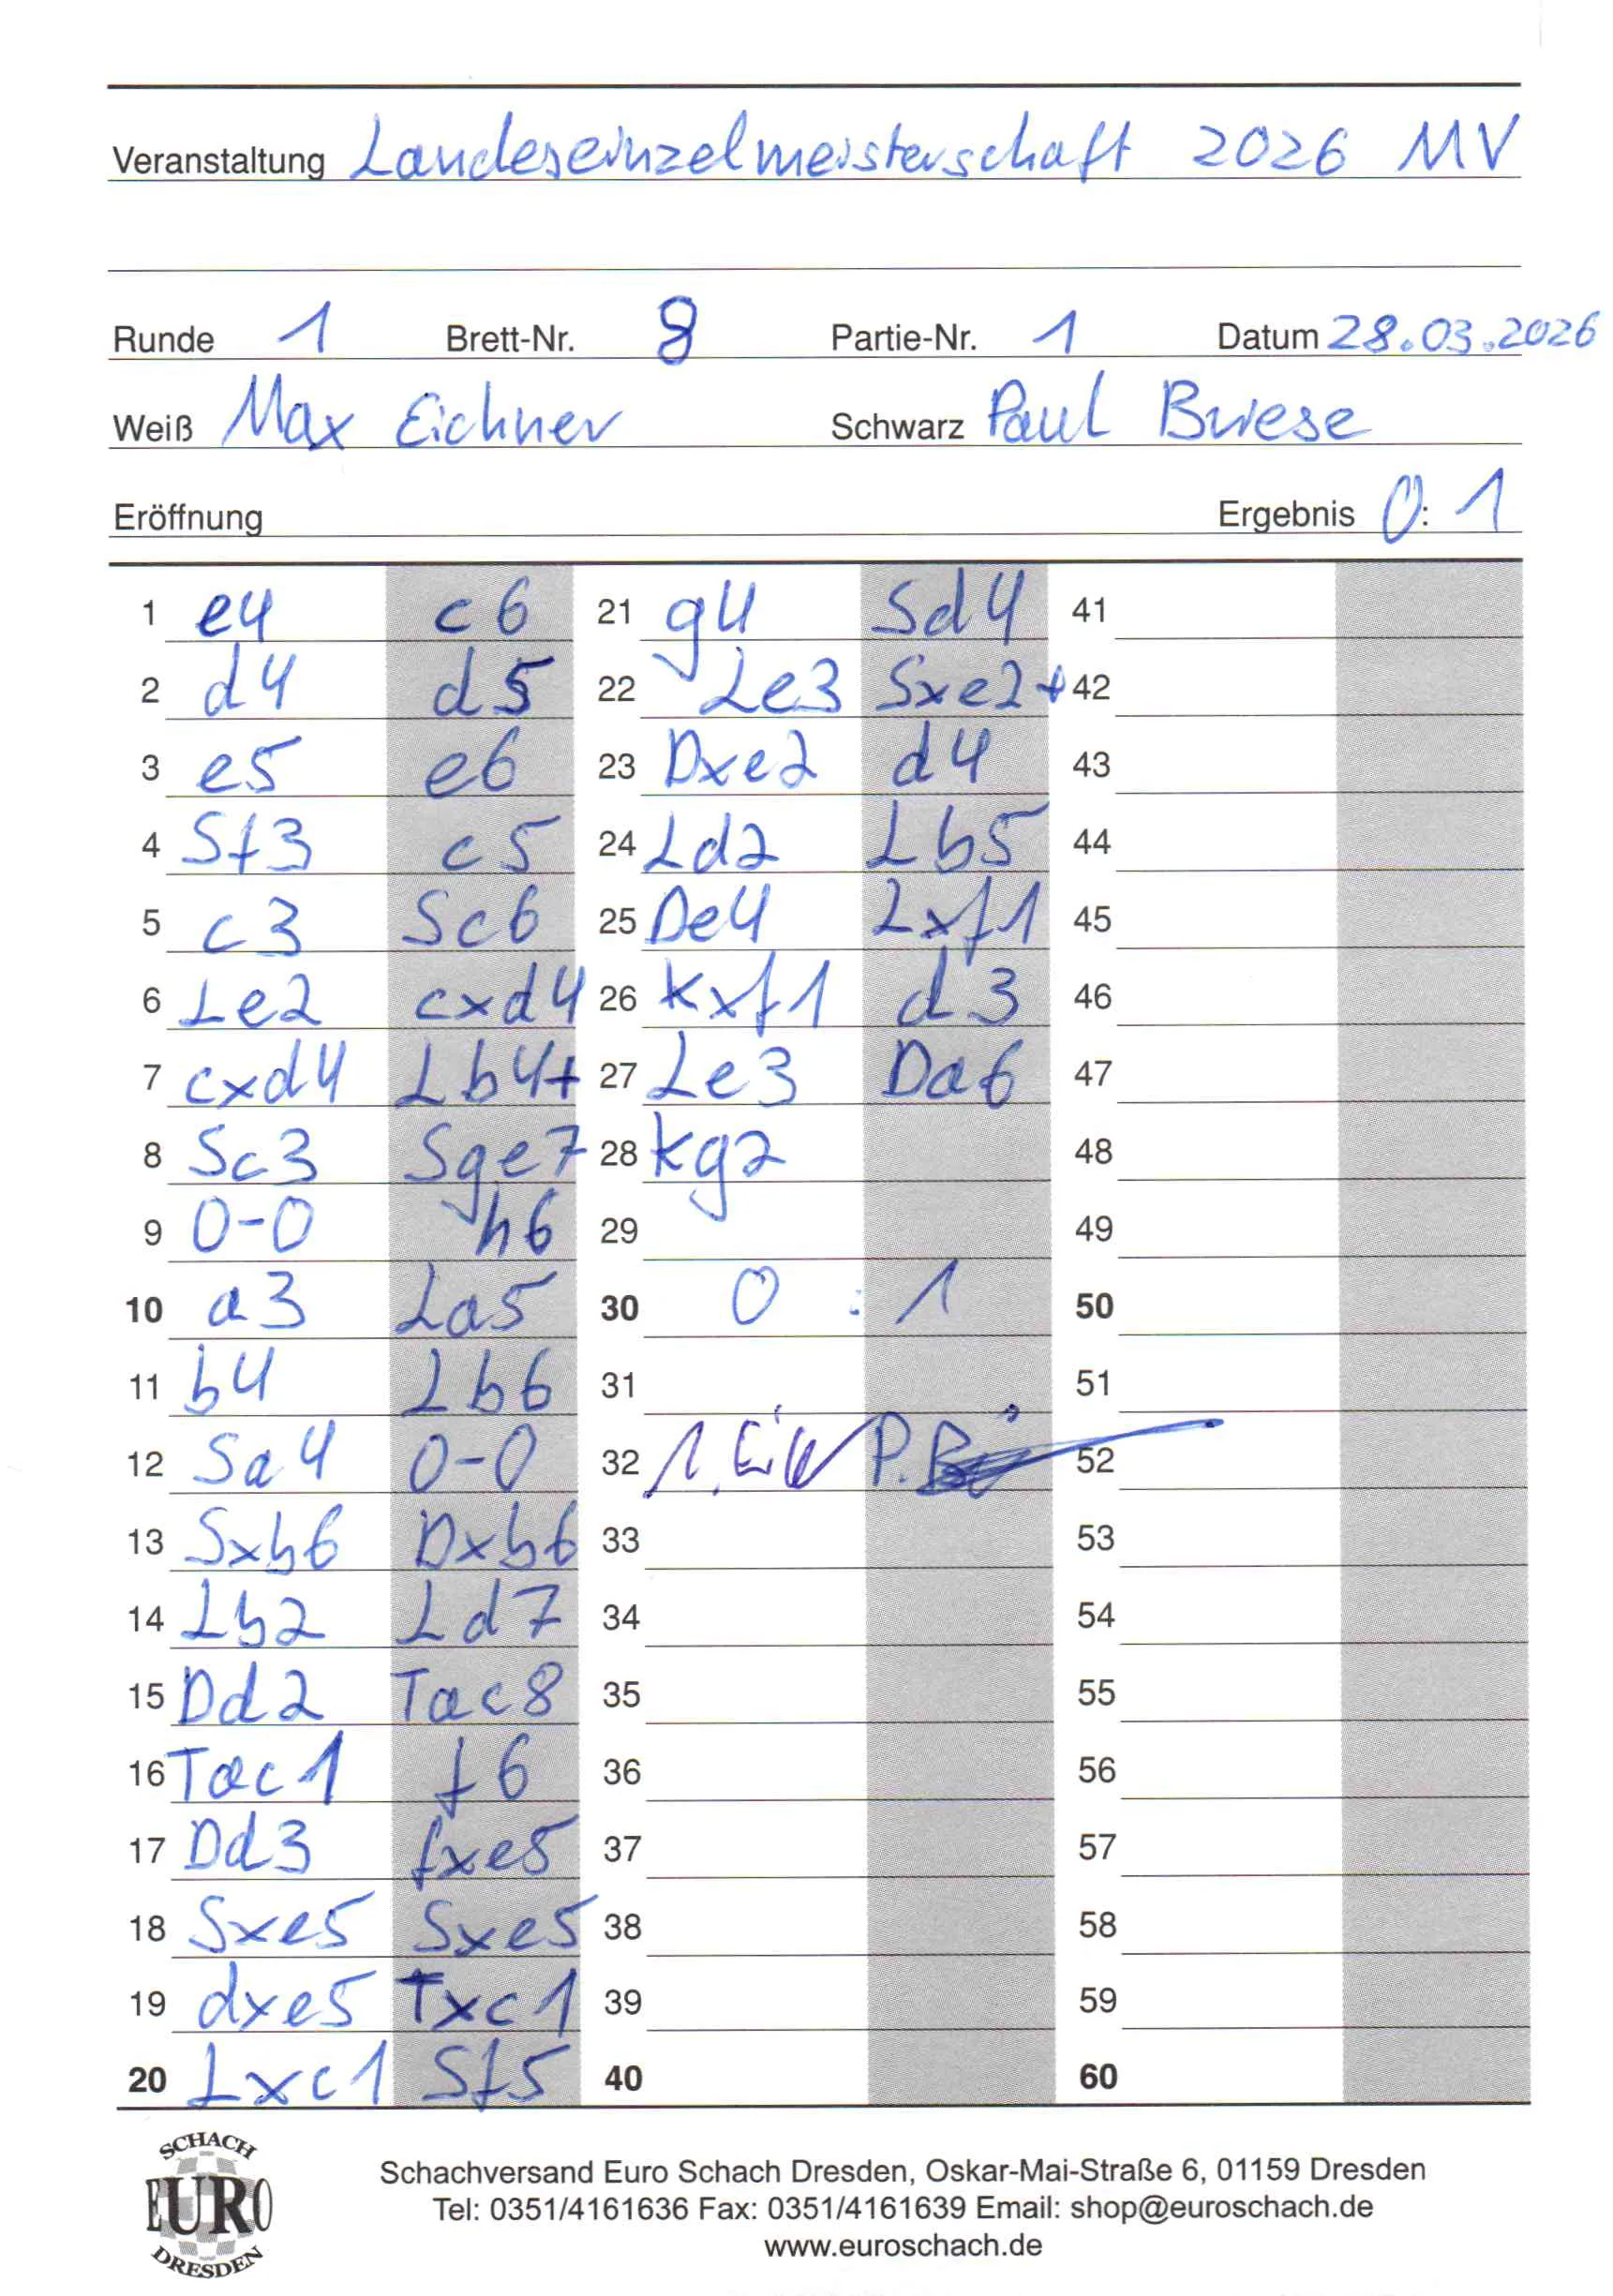 Veranstaltung Landeseinzelmeisterschaft 2026 MV
Runde 1 Brett-Nr. 8 Partie-Nr. 1 Datum 28.03.2026
Weiß Max Eichner Schwarz Paul Briese
Eröffnung Ergebnis 0:1
1 e4 c6 21 g4 Sd4 41
2 d4 d5 22 Le3 Sxe2+ 42
3 e5 e6 23 Dxe2 d4 43
4 Sf3 c5 24 Ld2 Lb5 44
5 c3 Sc6 25 De4 Lxf1 45
6 Le2 cxd4 26 Kxf1 d3 46
7 cxd4 Lb4+ 27 Le3 Da6 47
8 Sc3 Sge7 28 Kg2 48
9 0-0 h6 29 49
10 a3 La5 30 0 : 1 50
11 b4 Lb6 31 51
12 Sa4 0-0 32 52
13 Sxb6 Dxb6 33 53
14 Lb2 Ld7 34 54
15 Dd2 Tac8 35 55
16 Tac1 f6 36 56
17 Dd3 fxe5 37 57
18 Sxe5 Sxe5 38 58
19 dxe5 Txc1 39 59
20 Lxc1 Sf5 40 60
SCHACH
EURO
DRESDEN
Schachversand Euro Schach Dresden, Oskar-Mai-Straße 6, 01159 Dresden
Tel: 0351/4161636 Fax: 0351/4161639 Email: shop@euroschach.de
www.euroschach.de